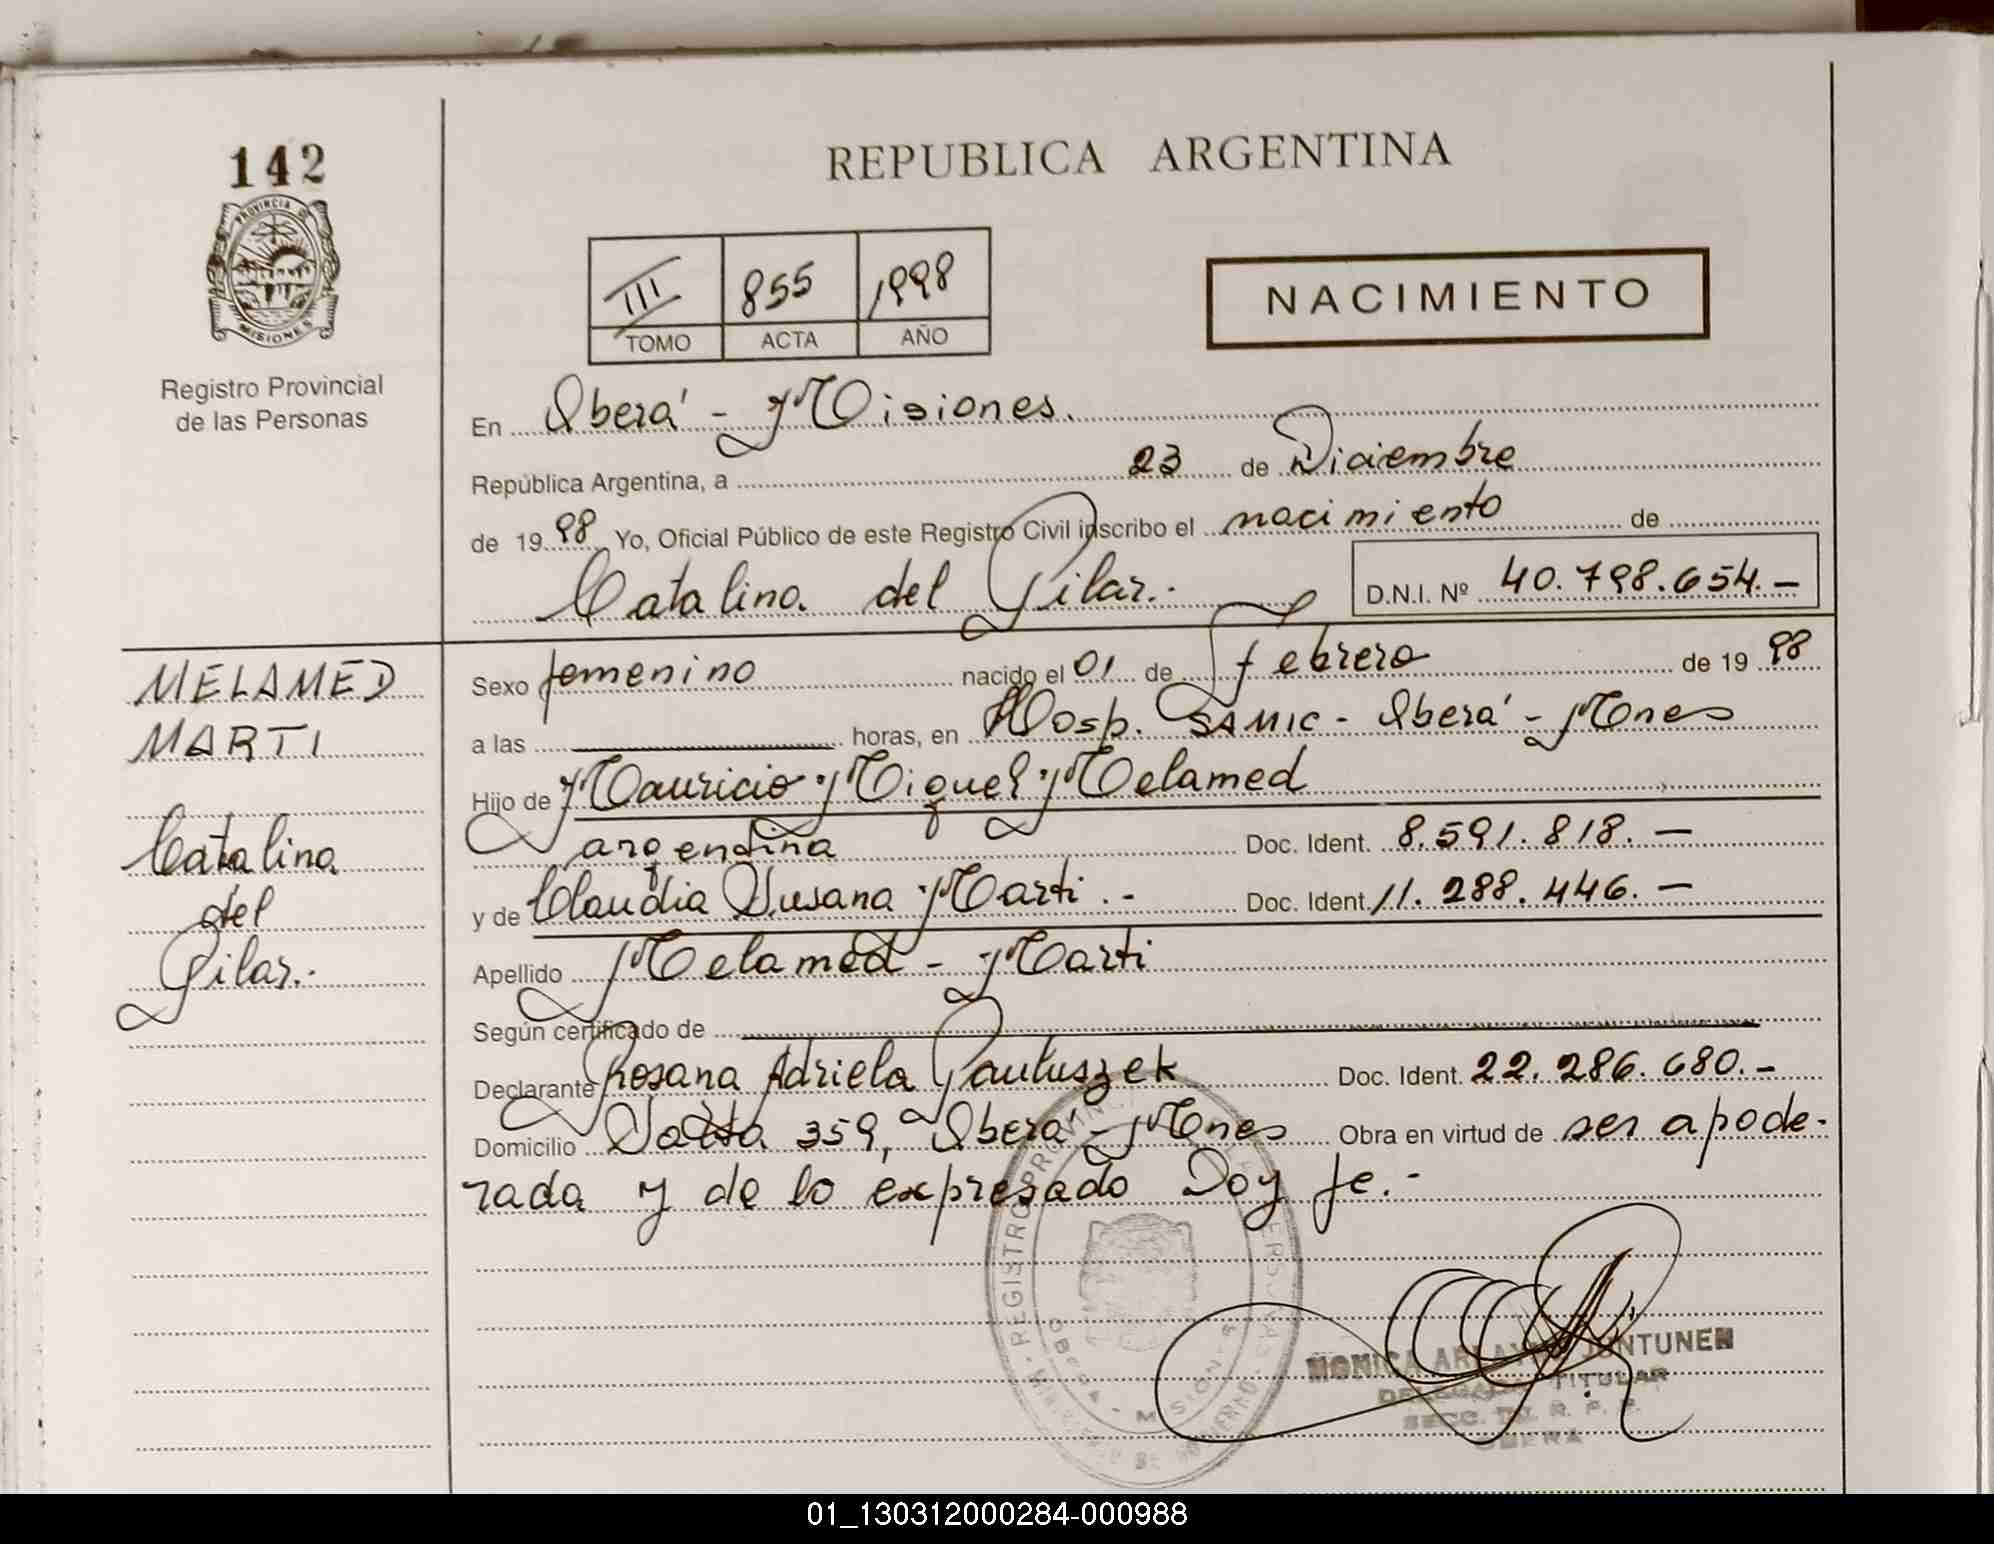 142
PROVINCIA DE
MISIONES
Registro Provincial
de las Personas
REPUBLICA ARGENTINA
III 855 1998
TOMO ACTA AÑO
NACIMIENTO
En Oberá - Misiones.
República Argentina, a 23 de Diciembre
de 19 98 Yo, Oficial Público de este Registro Civil inscribo el nacimiento de
Catalina del Pilar.-
D.N.I. Nº 40.798.654.-
MELAMED
MARTI
Catalina
del
Pilar.-
Sexo femenino nacido el 01 de febrero de 19 98
a las horas, en Hosp. SAMIC - Oberá - Mnes
Hijo de Mauricio Miguel Melamed
argentina Doc. Ident. 8.591.818.-
y de Claudia Susana Marti.- Doc. Ident. 11.288.446.-
Apellido Melamed - Marti
Según certificado de
Declarante Rosana Adriela Doc. Ident. 22.286.680.-
Domicilio Salta 359, Oberá - Mnes Obra en virtud de ser apode-
rada y de lo expresado Doy fe.-
REGISTRO PROVINCIAL DE LAS PERSONAS
OBERA - MISIONES
MINISTERIO DE GOBIERNO
MONICA JUNTUNEN
DELEGADA TITULAR
SECC. R. P. P.
OBERA
01_130312000284-000988